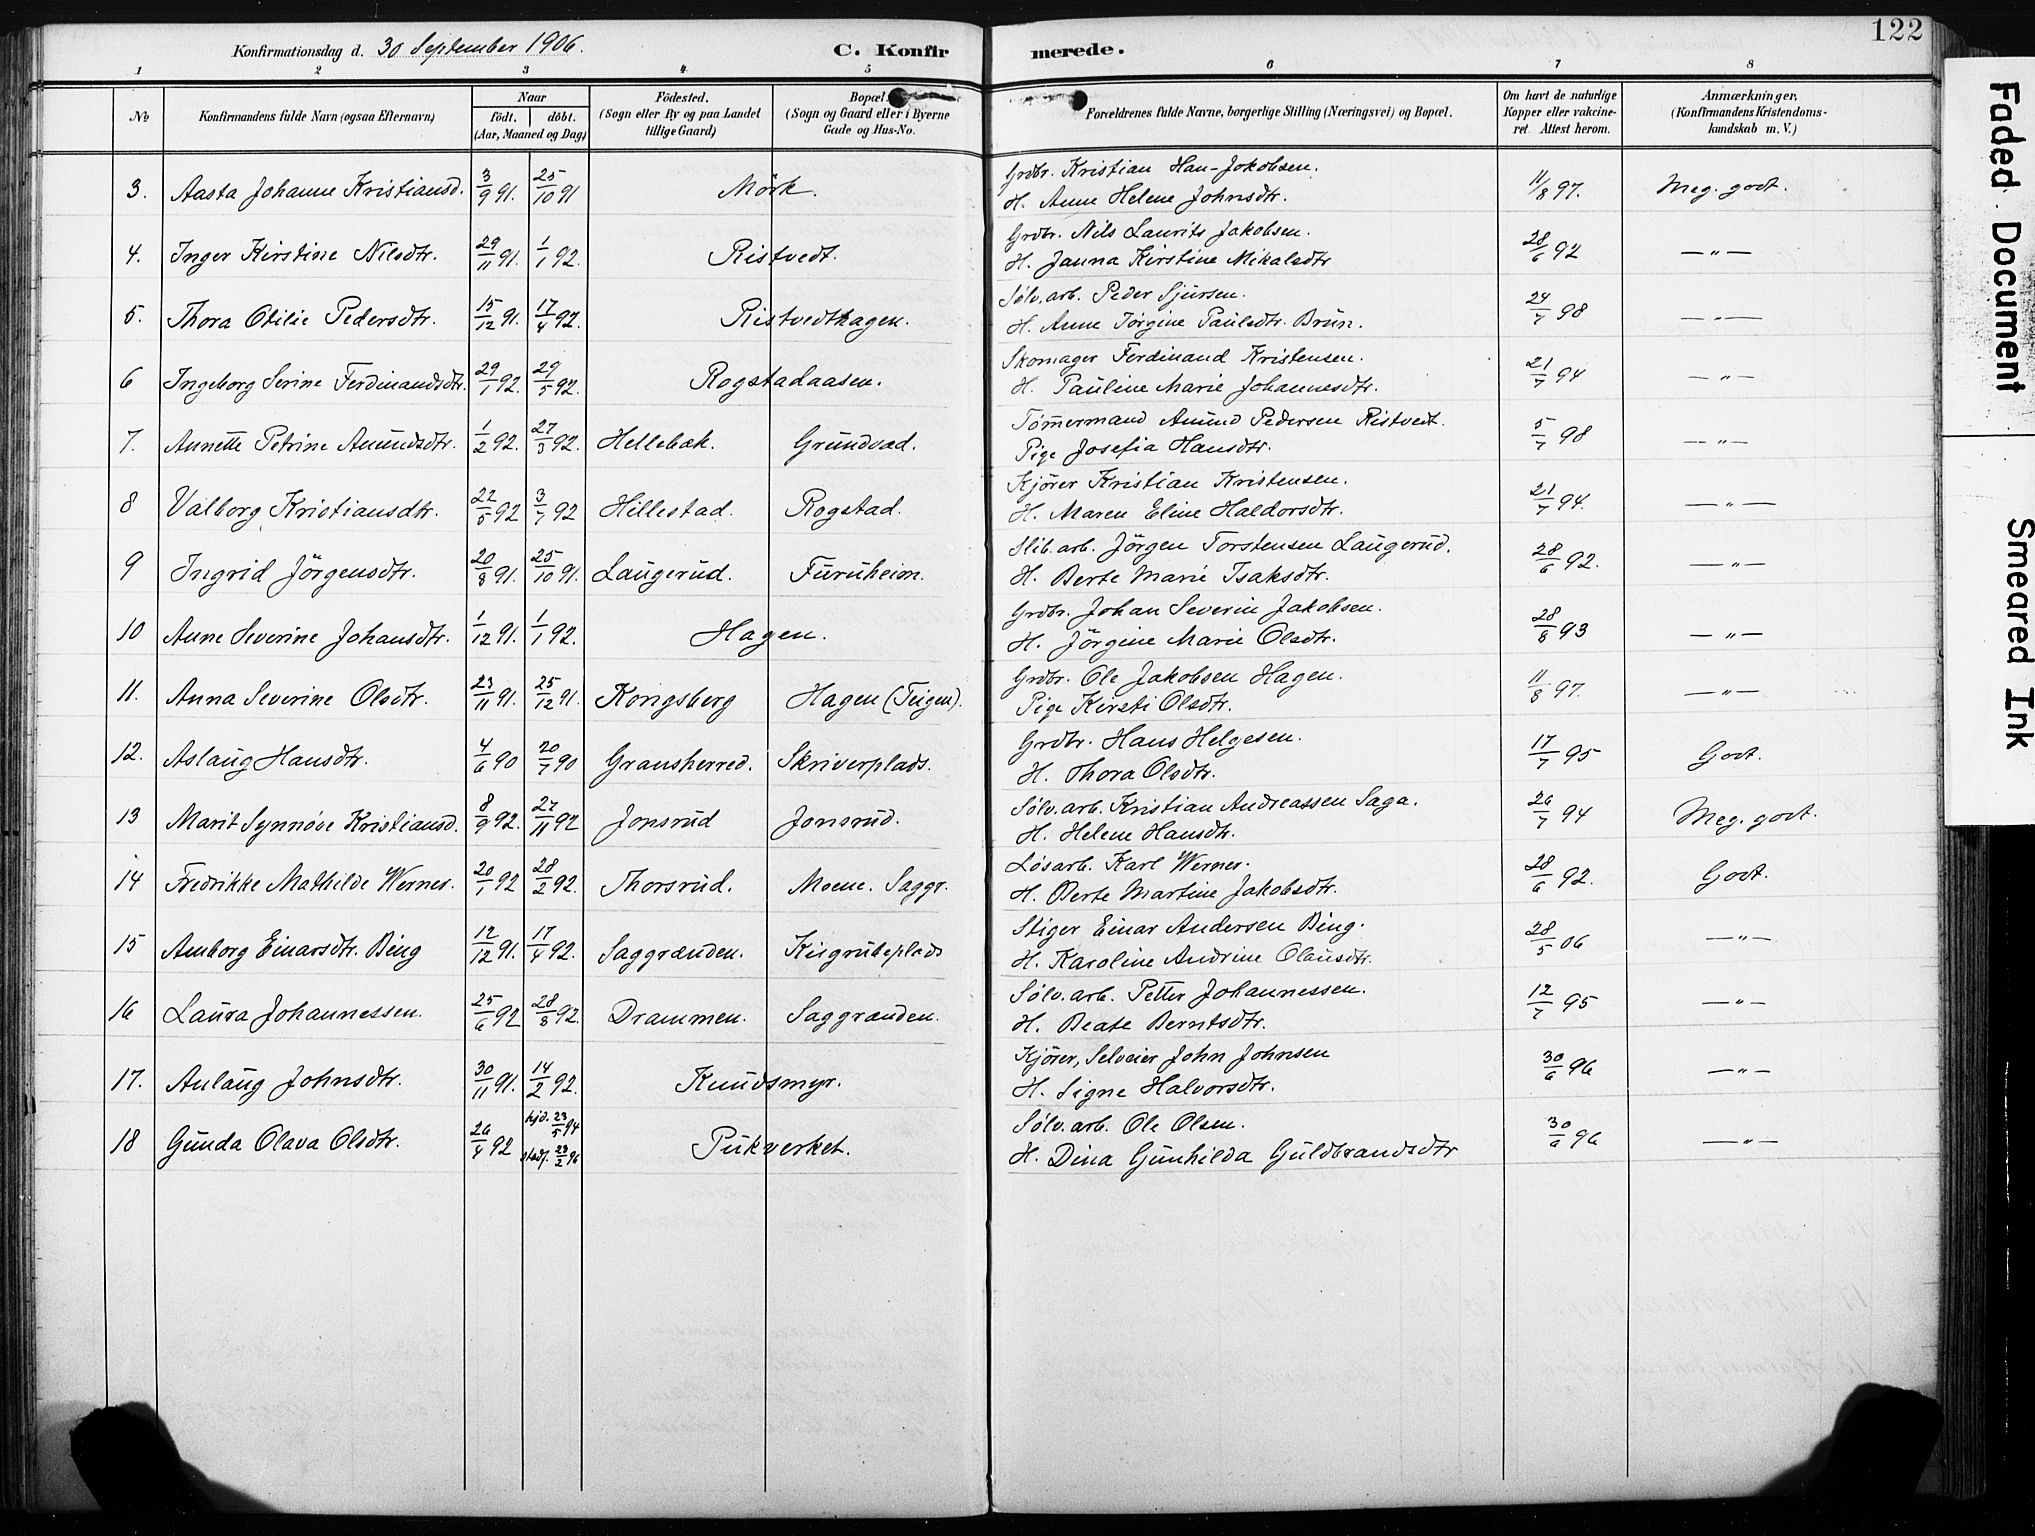 122
Konfirmationsdag d. 30 September 1906. C. Konfirmerede.
1 2 3 4 5 6 7 8
No Konfirmandens fulde Navn (ogsaa Efternavn) Naar født. døbt. (Aar, Maaned og Dag) Fødested. (Sogn eller By og paa Landet tillige Gaard) Bopæl. (Sogn og Gaard eller i Byerne Gade og Hus-No. Forældrenes fulde Navne, borgerlige Stilling (Næringsvei) og Bopæl. Om havt de naturlige Kopper eller vakcineret. Attest herom. Anmærkninger, (Konfirmandens Kristendomskundskab m. V.)
3. Aasta Johanne Kristiansd. 3/9 91. 25/10 91 Mörk. Grdbr. Kristian Han-Jokobsen. H. Anne Helene Johnsdtr. 11/8 97. Meg. godt.
4. Inger Kirstine Nilsdtr. 29/11 91. 1/1 92. Ristvedt. Grdbr. Nils Laurits Jakobsen. H. Janna Kirstine Mikalsdtr 28/6 92 — " —
5. Thora Otilie Pedersdtr. 15/12 91. 17/4 92. Ristvedthagen. Sølv. arb. Peder Sjursen. H. Anne Jörgine Paulsdtr. Brun. 24/7 98 — " —
6 Ingeborg Serine Ferdinandsdtr. 29/1 92. 29/5 92. Rogstadaasen. Skomager Ferdinand Kristensen. H. Pauline Marie Johannesdtr. 21/7 94 — " —
7. Annette Petrine Amundsdtr. 1/2 92. 27/3 92. Hellebæk. Grundvad. Tömmermand Amund Pedersen Ristvedt. Pige Josefia Hansdtr. 5/7 98 — " —
8 Valborg Kristiansdtr. 22/5 92 3/7 92 Hillestad. Rogstad. Kjörer Kristian Kristensen. H. Maren Eline Haldorsdtr. 21/7 94. — " —
9 Ingrid Jörgensdtr. 20/8 91. 25/10 91. Laugerud. Furuheim. Slib. arb. Jörgen Torstensen Laugerud. H. Berte Marie Isaksdtr. 28/6 92. — " —
10 Anne Severine Johansdtr. 1/12 91. 1/1 92. Hagen. Grdbr. Johan Severin Jakobsen. H. Jörgine Marie Olsdtr. 28/8 93 — " —
11. Anna Severine Olsdtr. 23/11 91. 25/12 91. Kongsberg Hagen (Teigen). Grdbr. Ole Jakobsen Hagen. Pige Kirsti Olsdtr. 11/8 97. — " —
12. Aslaug Hansdtr. 4/6 90 20/7 90 Gransherred. Skriverplads. Grdbr. Hans Helgesen. H. Thora Olsdtr. 17/7 95 Godt.
13 Marit Synnöve Kristiansd. 8/9 92. 27/11 92 Jonsrud Jonsrud. Sølv. arb. Kristian Andreassen Saga. H. Helene Hansdtr. 26/7 94 Meg. godt.
14 Fredrikke Mathilde Werner. 20/1 92 28/2 92. Thorsrud. Moene. Saggr. Løsarb. Karl Werner. H. Berte Martine Jakobsdtr. 28/6 92. Godt.
15 Amborg Einarsdtr. Bing 12/12 91. 17/4 92. Saggrænden. Kisgrubeplads Stiger Einar Andersen Bing. H. Karoline Andrine Olausdtr. 28/5 06 — " —
16 Laura Johannessen. 25/6 92 28/8 92. Drammen. Saggrænden. Sølv. arb. Petter Johannessen. H. Beate Berntsdtr. 12/7 95 — " —
17. Aulaug Johnsdtr. 30/11 91. 14/2 92. Knudsmyr. Kjörer, Selveier John Johnsen H. Signe Halvorsdtr. 30/6 96 — " —
18 Gunda Olava Olsdtr. 26/4 92 hjd. 23/5 94 stadf. 23/2 96 Pukverket. Sølv. arb. Ole Olsen. H. Dina Gunhilda Guldbrandsdtr 30/6 96 — " —
Faded Document
Smeared Ink